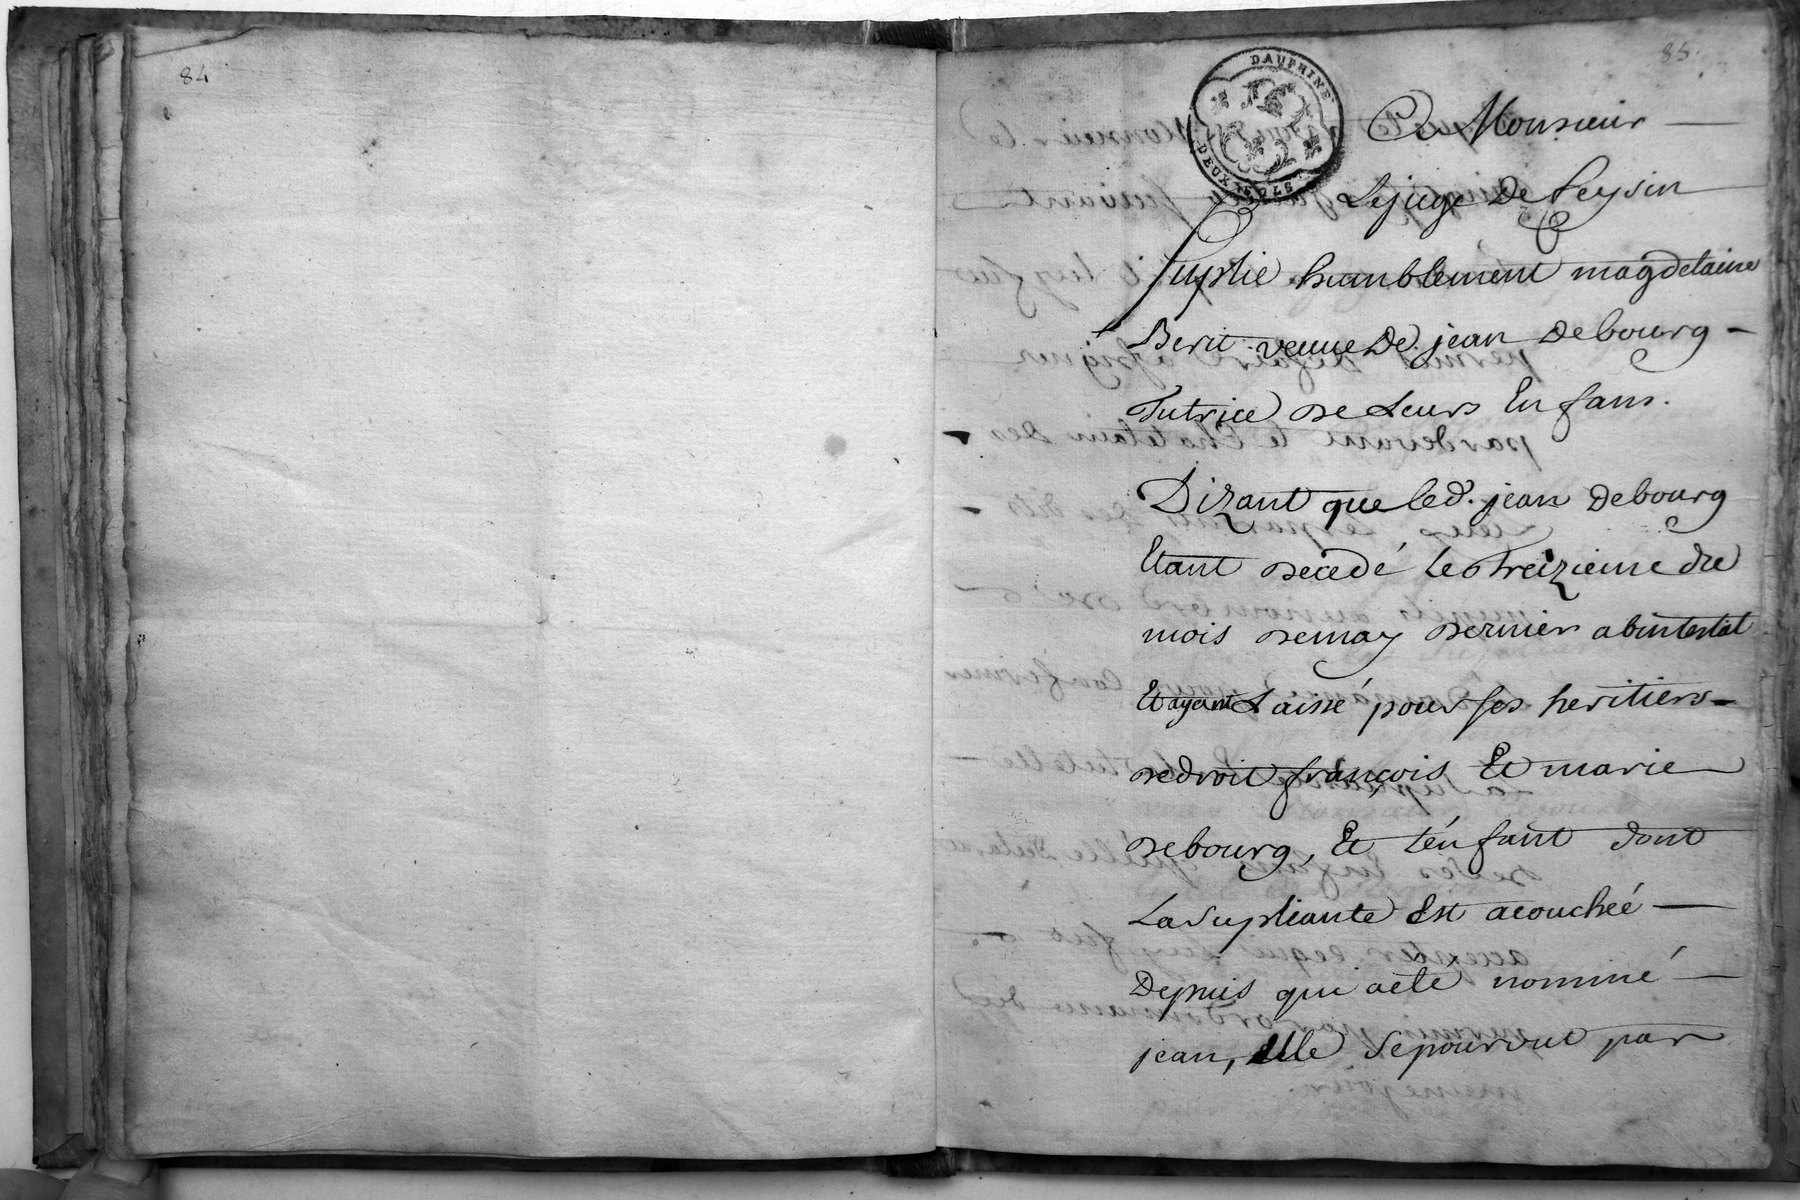 84
85.
DAUPHINE
DEUX SOLS
A Monsieur
Le juge De feysin
Suplie humblement magdelaine
Berit veuue De jean Debourg
Tutrice de Leurs Enfans.
Dizant que led. jean Debourg
Etant decedé Le treizieme du
mois de may dernier abintestat
Et ayant Laissé pour ses heritiers
de droit françois Et marie
debourg, Et l'énfant dont
La Supliante Est acouchée
Depuis qui a eté nommé
jean, Elle Se pourvut par